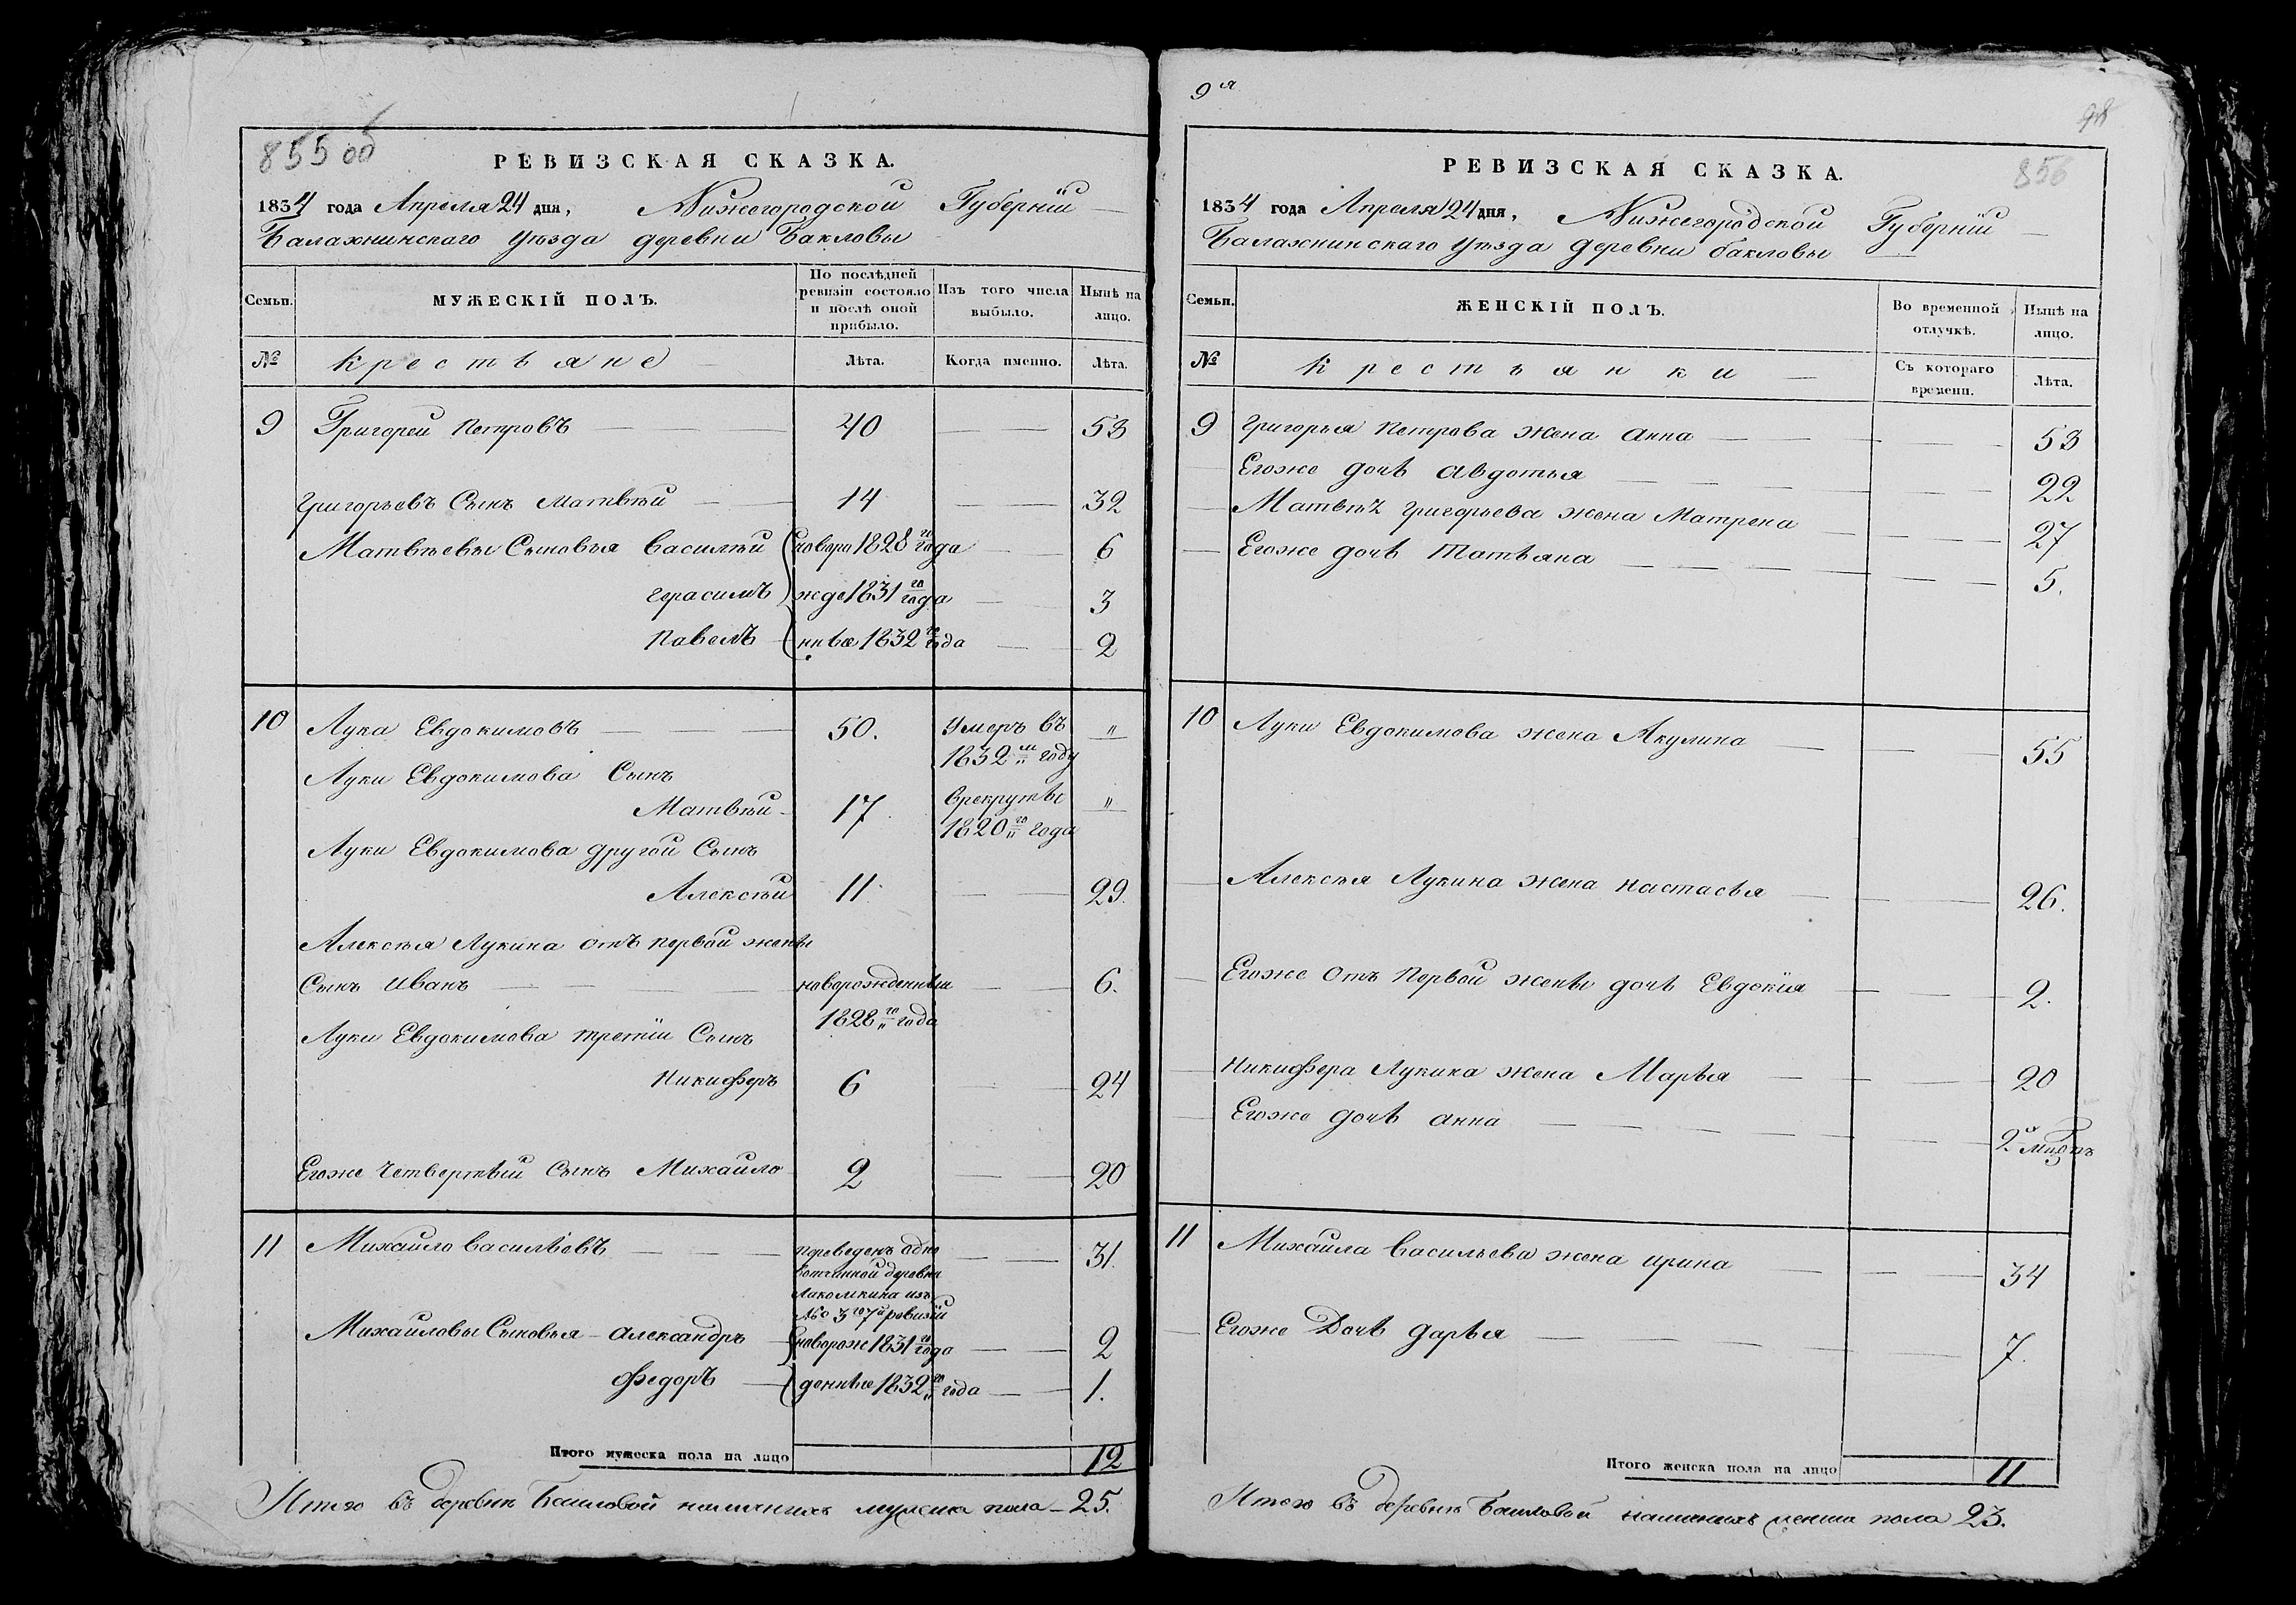 855 об
РЕВИЗСКАЯ СКАЗКА.
1834 года Апреля 24 дня, Нижегородской Губернїи
Балахнинскаго уѣзда деревни Бакловы
Семьи.
МУЖЕСКІЙ ПОЛЪ.
По послѣдней ревизіи состояло и послѣ оной прибыло.
Изъ того числа выбыло.
Нынѣ на лицо.
№
крестьяне
Лѣта.
Когда именно.
Лѣта.
9 Григорей Петровъ 40 53
Григорьевъ Сынъ Матвѣй 14 32
Матвѣевы Сыновья Василѣй новоро 1828го года 6
герасимъ жде 1831го года 3
Павелъ ннѣе 1832го года 2
10 Лука Евдокимовъ 50. Умеръ въ "
1832м году
Луки Евдокимова Сынъ
Матвѣй 17 Врекрутѣ "
1820го года
Луки Евдокимова другой Сынъ
Алексѣй 11 29.
Алексѣя Лукина отъ первой жены
Сынъ иванъ новорожденны 6.
1828го года
Луки Евдокимова третїи Сынъ
Никифоръ 6 24
Егоже четвертѣй Сынъ Михайло 2 20
11 Михайло василѣевъ переведенъ одно 31.
вотчинной деревни
Лакомкина изъ
№ 3го 7й ревизїи
Михайловы Сыновья Александръ новорож 1831го года 2
Федоръ деннѣе 1832го года 1.
Итого мужеска пола на лицо 12
Итого въ деревнѣ Бакловой наличныхъ мужска пола - 25.
9я
98
856
РЕВИЗСКАЯ СКАЗКА.
1834 года Апреля 24 дня, Нижегородской Губернїи
Балахнинскаго уѣзда деревни бакловы
Семьи.
ЖЕНСКІЙ ПОЛЪ.
Во временной отлучкѣ.
Нынѣ на лицо.
№
крестьянки
Съ котораго времени.
Лѣта.
9 григорья Петрова жена анна 53
Егоже дочѣ авдотья 22
Матвѣя григорьева жена Матрена 27
Егоже дочѣ татѣяна 5.
10 Луки Евдокимова жена Акулина 55
Алексѣя Лукина жена настасѣя 26.
Егоже отъ первой жены дочѣ Евдокїя 2.
Никифора Лукина жена Марѣя 20
Егоже дочѣ анна 2х
11 Михаила васильева жена ирина 34
Егоже Дочѣ дарѣя 7.
Итого женска пола на лицо 11
Итого въ деревнѣ Бакловой наличныхъ женска пола 23.